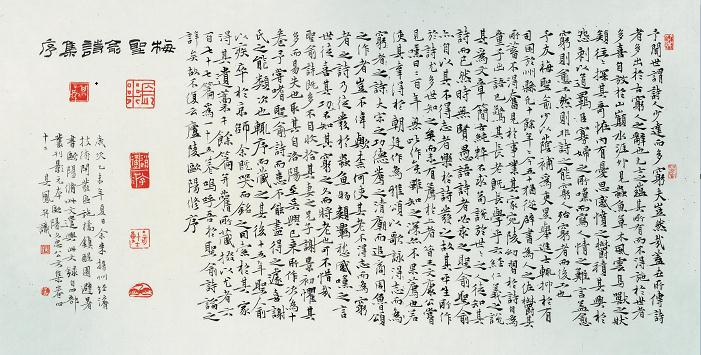 梅聖俞詩集序
予聞世謂詩人少達而多窮夫豈然哉蓋世所傳詩
者多出於古窮人之辭也凡士之蘊其所有而不得施於世者
多喜自放於山巔水涯外見蟲魚草木風雲鳥獸之狀
類往往探其奇怪內有憂思感憤之鬱積其興於
怨刺以道羈臣寡婦之所嘆而寫人情之難言蓋愈
窮則愈工然則非詩之能窮人殆窮者而後工也
予友梅聖俞少以蔭補為吏累舉進士輒抑於有
司困於州縣凡十餘年年今五十猶從辟書為人之佐鬱其
所畜不得奮見於事業其家宛陵幼習於詩自為
童子出語已驚其長老既長學乎六經仁義之說
其為文章簡古純粹不求苟說於世世之人徒知其
詩而已然時無賢愚語詩者必求之聖俞聖俞
亦自以其不得志者樂於詩而發之故其平生所作
於詩尤多世既知之矣而未有薦於上者昔王文康公嘗
見而嘆曰二百年無此作矣雖知之深亦不果薦也若
使其幸得於朝廷作為雅頌以歌詠得志而為
窮者之詩大宋之功德薦之清廟而追商周魯頌
之作者豈不偉歟奈何使其老不得志而為窮
者之詩乃徒發於蟲魚物類羈愁感嘆之言
世徒喜其工不知其窮之久而將老也可不惜哉
聖俞詩既多不自收拾其妻之兄子謝景初懼其
多而易失也取其自洛陽至於吳興已來所作次為十
卷予嘗嗜聖俞詩而患不能盡得之遽喜謝
氏之能類次也輒序而藏之其後十五年聖俞
以疾卒於京師余既哭而銘之因索於其家
得其遺藁千餘篇并舊所藏掇其尤者六
百七十七篇為一十五卷嗚呼吾於聖俞詩論之
詳矣故不復云廬陵歐陽修序
歲次乙未年夏日余來揚州經濟
技術開發區施橋鎮 園避暑
書歐陽脩此文遣興此文錄自四部
叢刊景元本歐陽文忠公文集卷四
十二 吳鳳 識